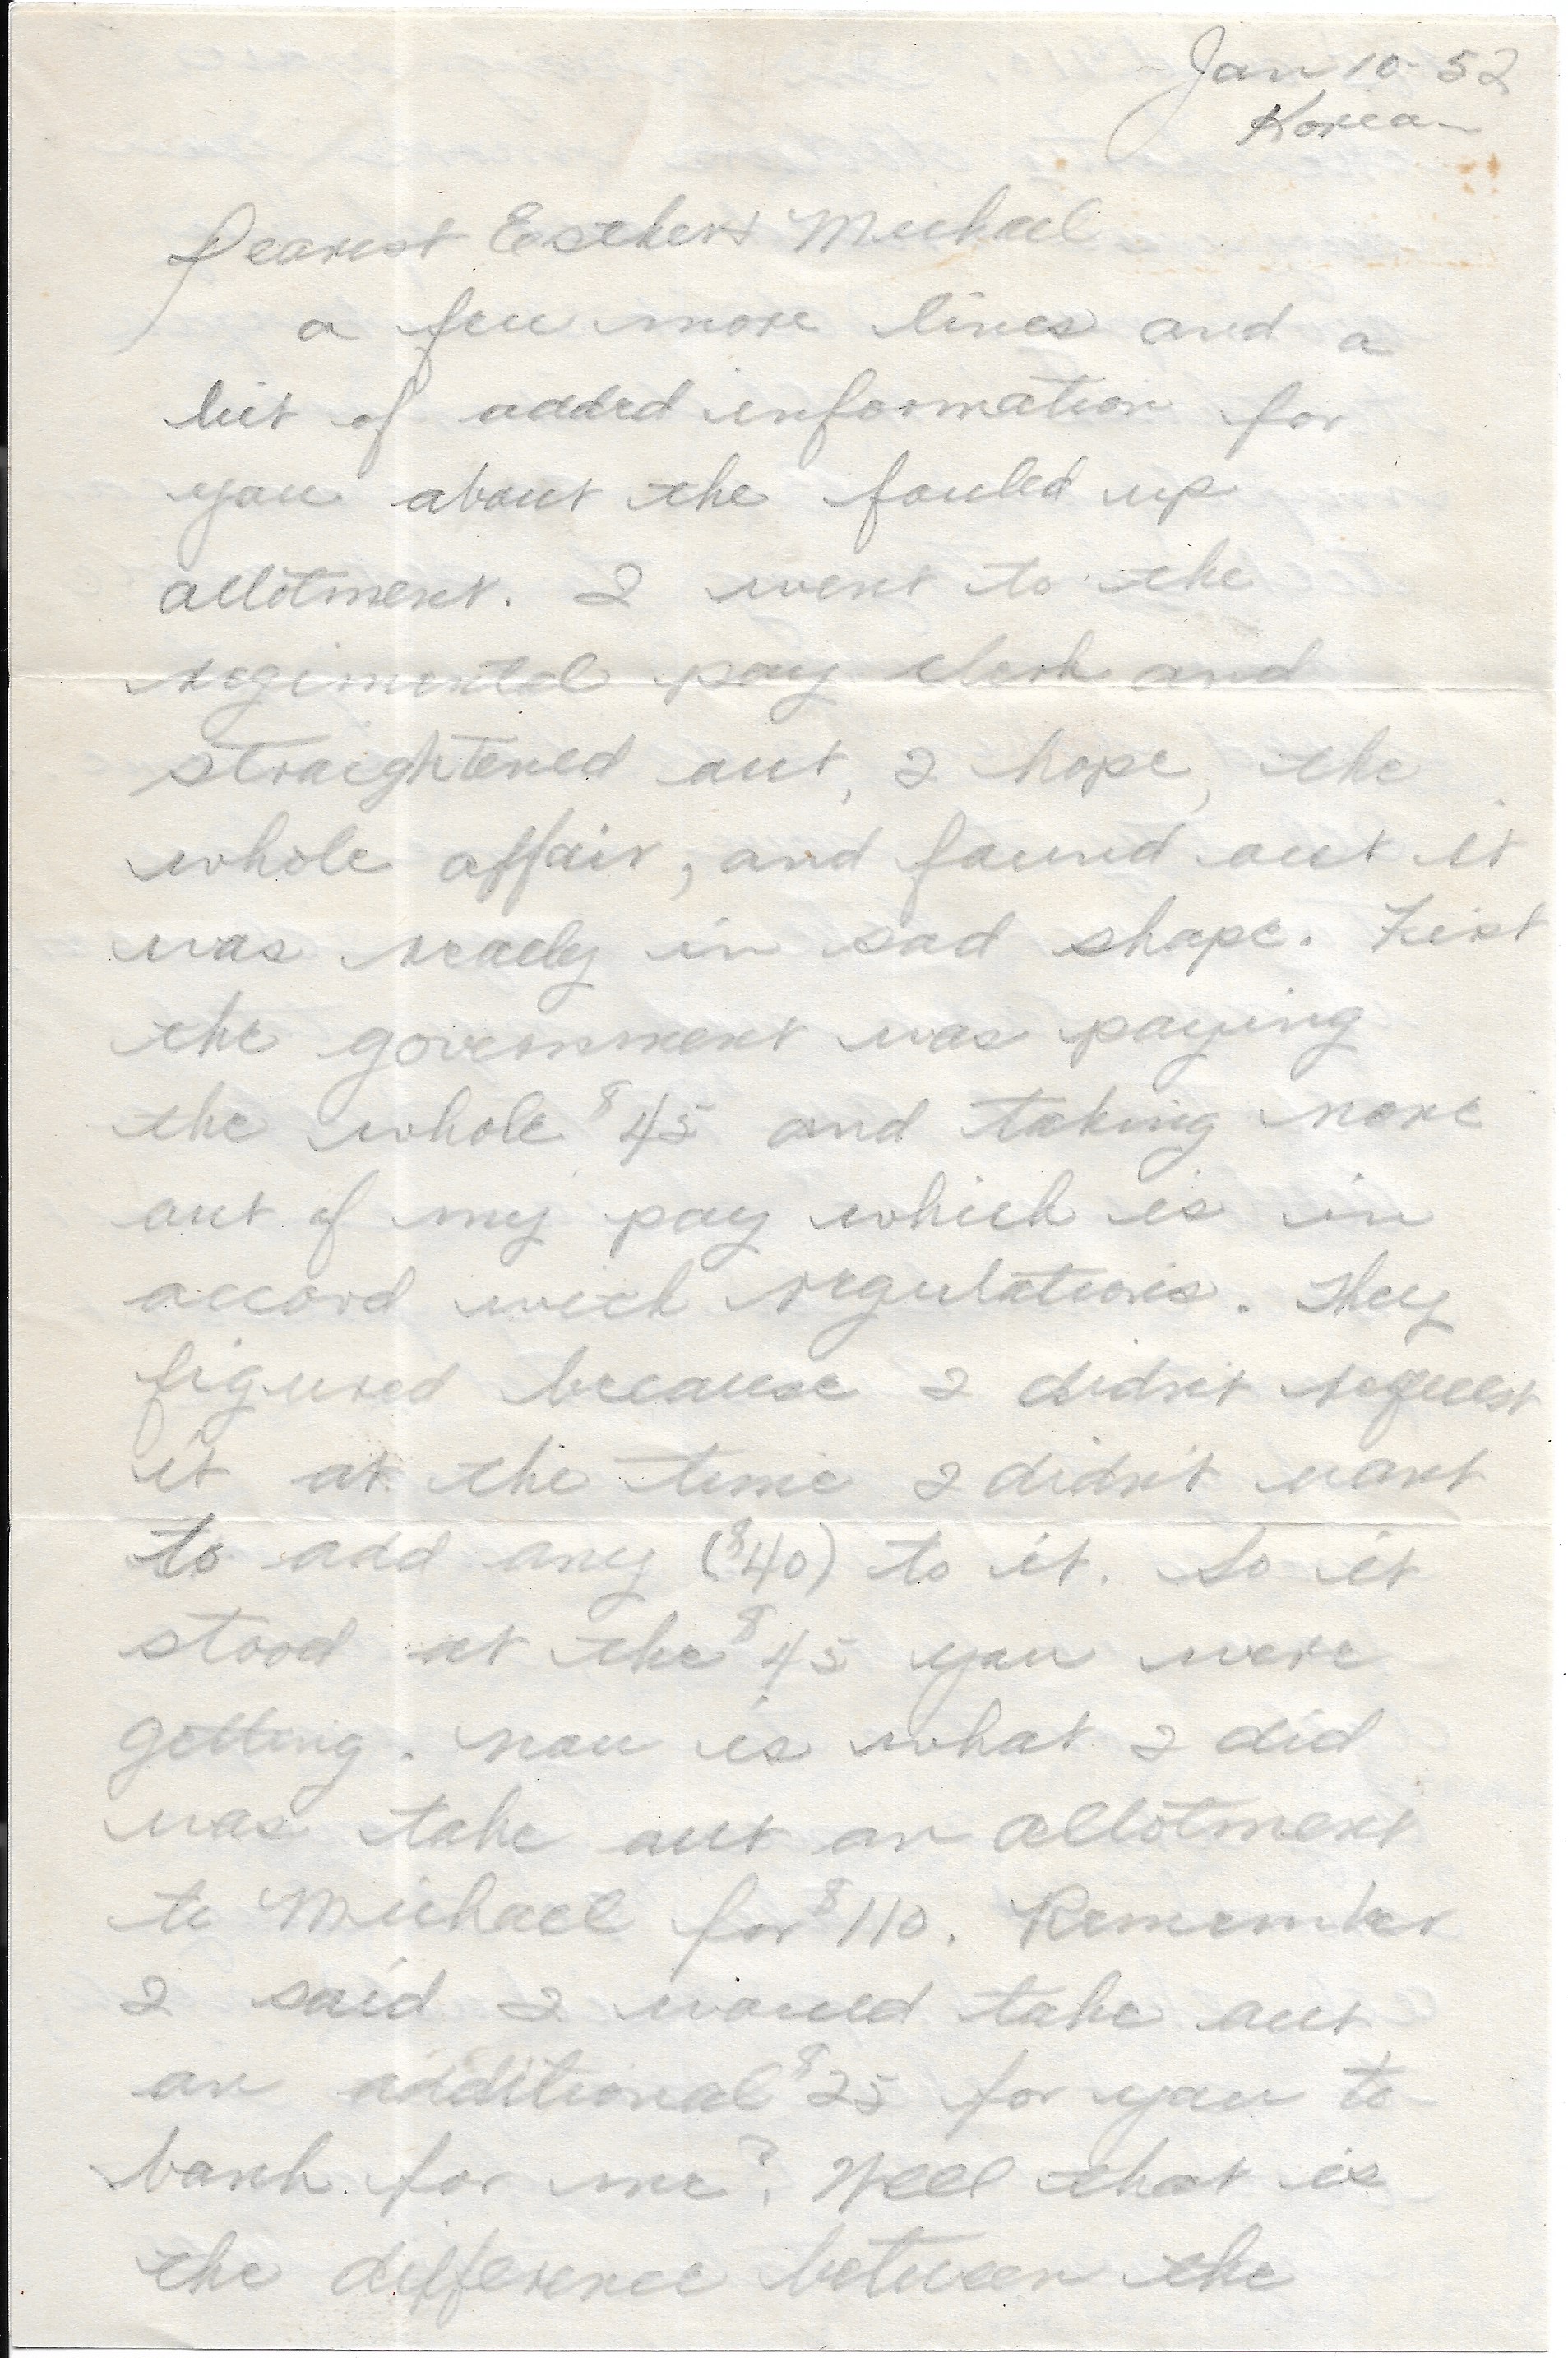 Jan 10-52
Korea
Dearest Esther & Michael
a few more lines and a
bit of added information for
you about the fouled up
allotment. I went to the
regimental pay clerk and
straightened out, I hope, the
whole affair, and found out it
was really in sad shape. First
the government was paying
the whole $45 and taking none
out of my pay which is in
accord with regulations. They
figured because I didn't request
it at the time I didn't want
to add any ($40) to it. So it
stood at the $45 you were
getting. Now is what I did
was take out an allotment
to Michael for $110. Remember
I said I would take out
an additional $25 for you to
bank for me? Well that is
the difference between the